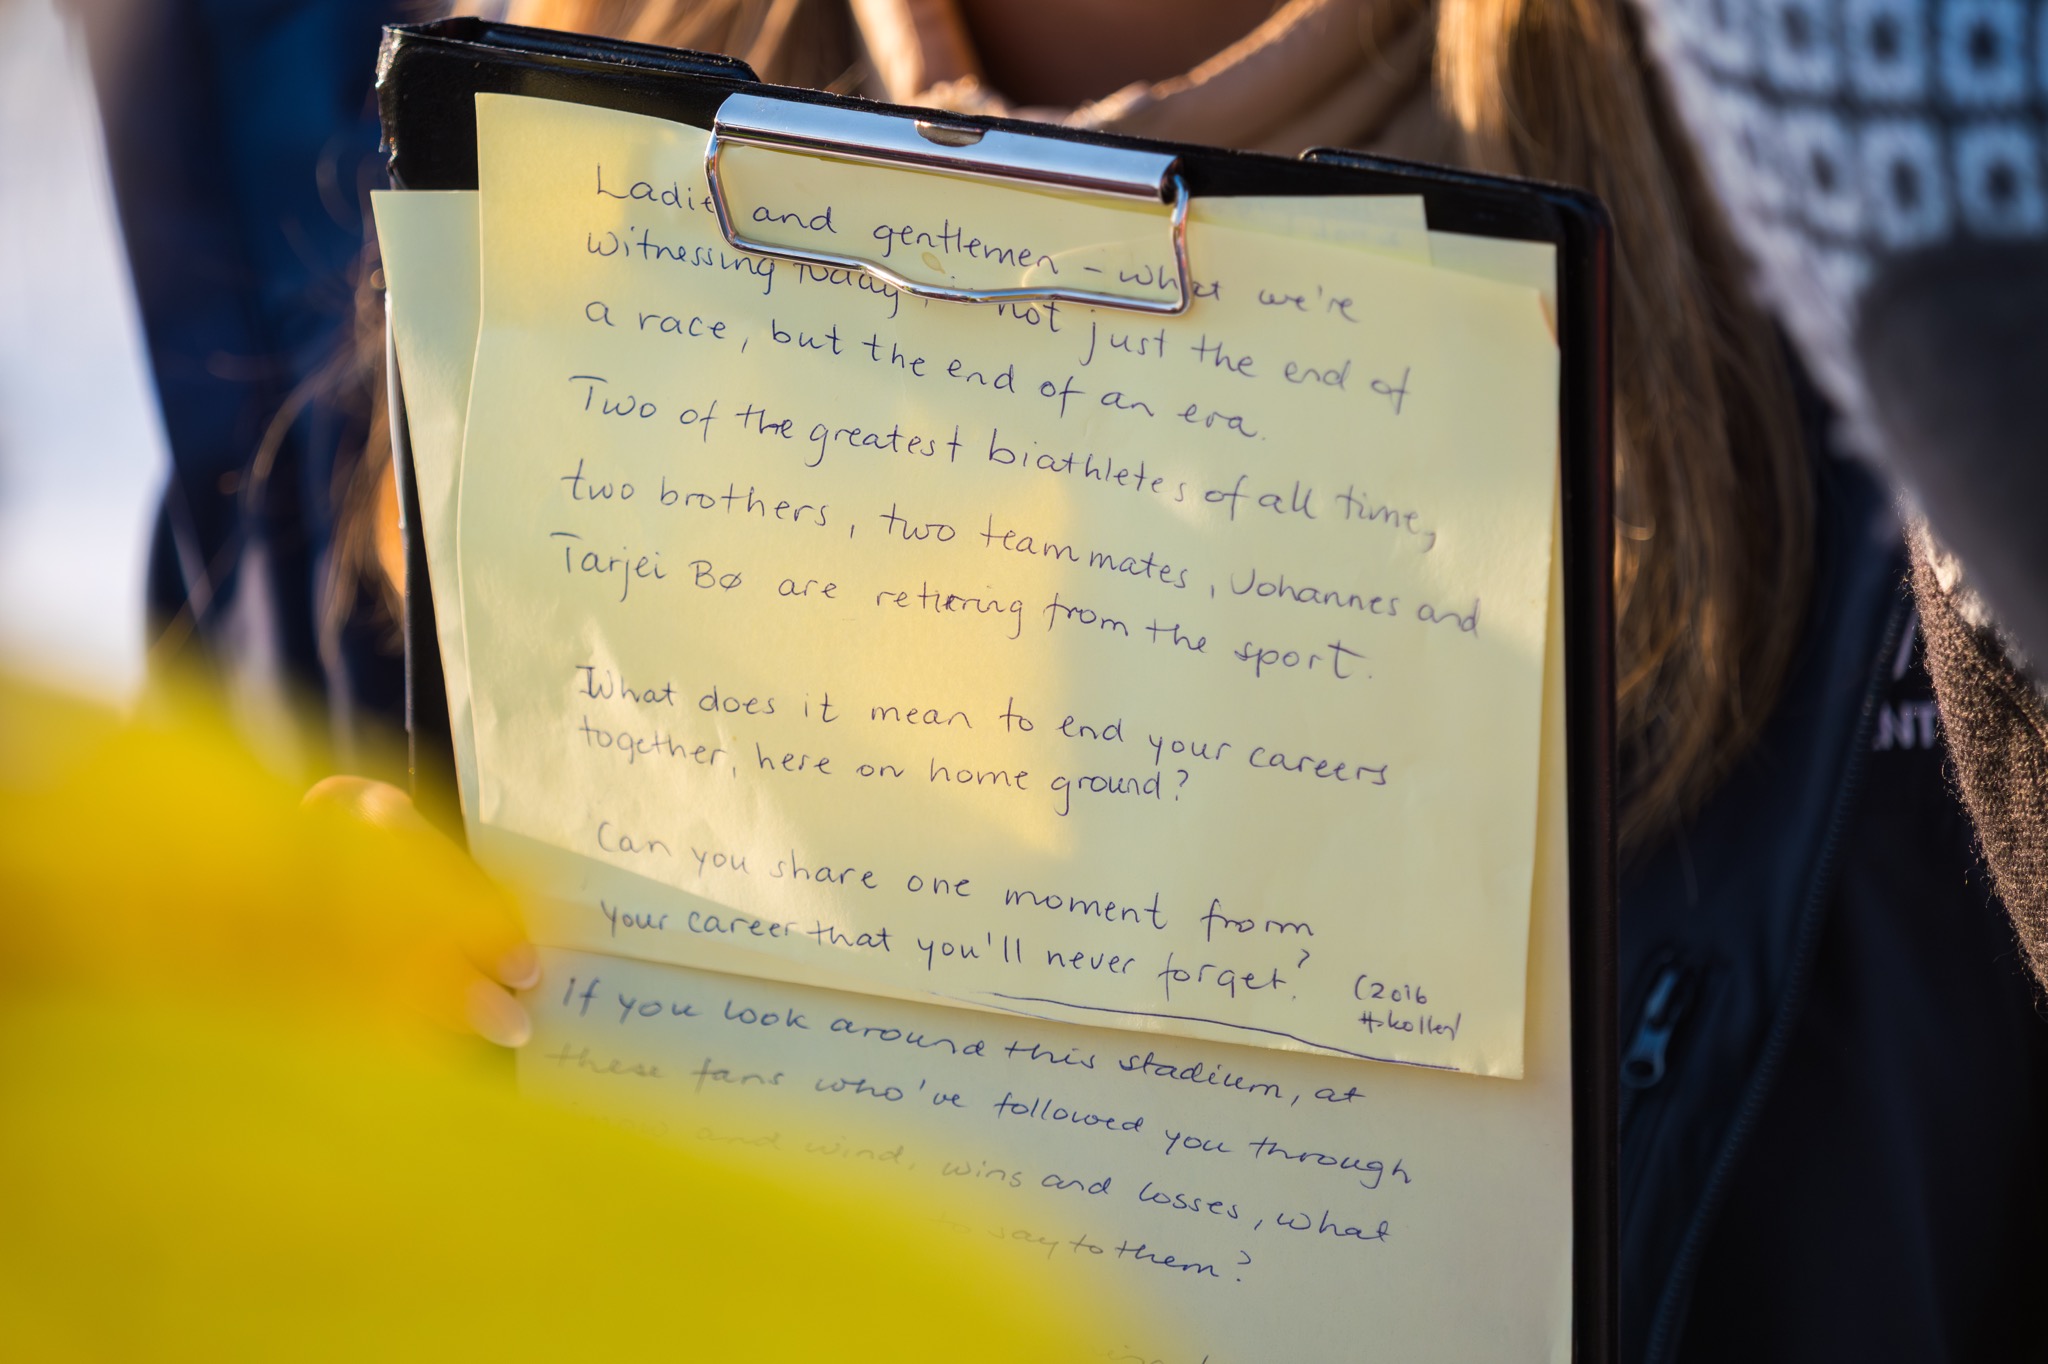 Ladie and gentlemen – what we're
witnessing today, is not just the end of
a race, but the end of an era.
Two of the greatest biathletes of all time,
two brothers, two teammates, Johannes and
Tarjei Bø are retiering from the sport.
What does it mean to end your careers
together, here on home ground?
Can you share one moment from
your career that you'll never forget?
(2016
H.kollen
If you look around this stadium, at
these fans who've followed you through
and wind, wins and losses, what
to say to them?
NT